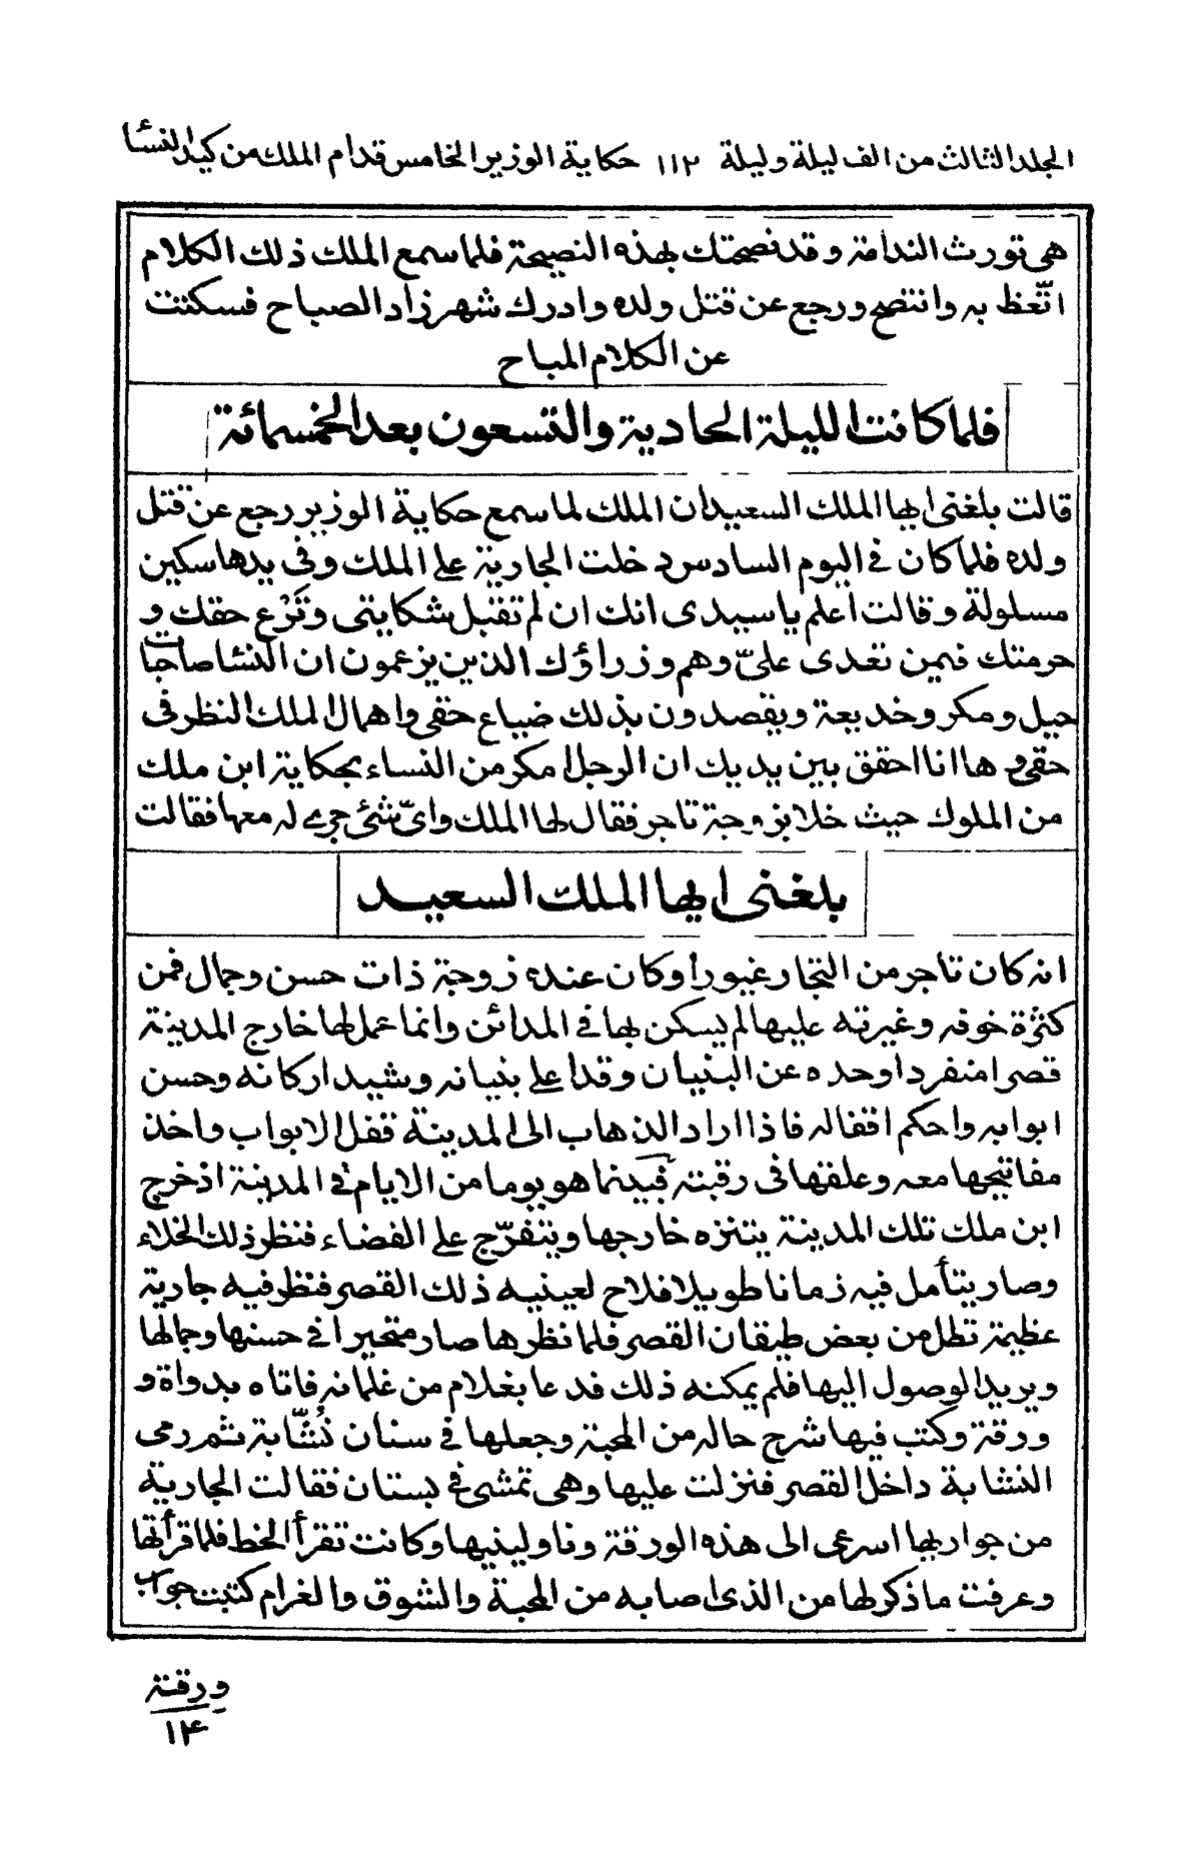 الجلد الثالث من الف ليلة وليلة ١١٢ حكاية الوزير الخامس قدام الملك من كيد النسأ
هى تورث الندامة وقد نصحتك بهذه النصيحة فلما سمع الملك ذلك الكلام
اتّعظ به وانتصح ورجع عن قتل ولده وادرك شهرزاد الصباح فسكتت
عن الكلام المباح
فلما كانت الليلة الحادية والتسعون بعد الخمسمائة
قالت بلغنى ايها الملك السعيد ان الملك لما سمع حكاية الوزير رجع عن قتل
ولده فلما كان فى اليوم السادس دخلت الجارية على الملك وفى يدها سكين
مسلولة وقالت اعلم يا سيدى انك ان لم تقبل شكايتى وتَرْع حقك و
حرمتك فيمن تعدى علىّ وهم وزراؤك الذين يزعمون ان النسٔا صاحبات
حيل ومكر وخديعة ويقصدون بذلك ضياع حقى واهمال الملك النظر فى
حقى وها انا احقق بين يديك ان الرجال امكر من النساء بحكاية ابن ملك
من الملوك حيث خلا بزوجة تاجر فقال لها الملك واىّ شئ جرى له معها فقالت
بلغنى ايها الملك السعيد
انه كان تاجر من التجار غيورا وكان عنده زوجة ذات حسن وجمال فمن
كثرة خوفه وغيرته عليها لم يسكن بها فى المدائن وانما عمل لها خارج المدينة
قصرا منفردا وحده عن البنيان وقد اعلى بنيانه وشيد اركانه وحسن
ابوابه واحكم اقفاله فاذا اراد الذهاب الى المدينة قفل الابواب واخذ
مفاتيحها معه وعلقها فى رقبته فبينما هو يوما من الايام فى المدينة اذ خرج
ابن ملك تلك المدينة يتنزه خارجها ويتفرّج على الفضاء فنظر ذلك الخلاء
وصار يتأمل فيه زمانا طويلا فلاح لعينيه ذلك القصر فنظر فيه جارية
عظيمة تطل من بعض طيقان القصر فلما نظرها صار متحيرا فى حسنها وجمالها
ويريد الوصول اليها فلم يمكنه ذلك فدعا بغلام من غلمانه فاتاه بدواة و
ورقة وكتب فيها شرح حاله من المحبة وجعلها فى سنان نُشّابة ثم رمى
النشابة داخل القصر فنزلت عليها وهى تمشى فى بستان فقالت الجارية
من جواريها اسرعى الى هذه الورقة وناولينيها وكانت تقرأ الخط فلما قرأتها
وعرفت ما ذكر لها من الذى اصابه من المحبة والشوق والغرام كتبت جواب
ورقة
١٤